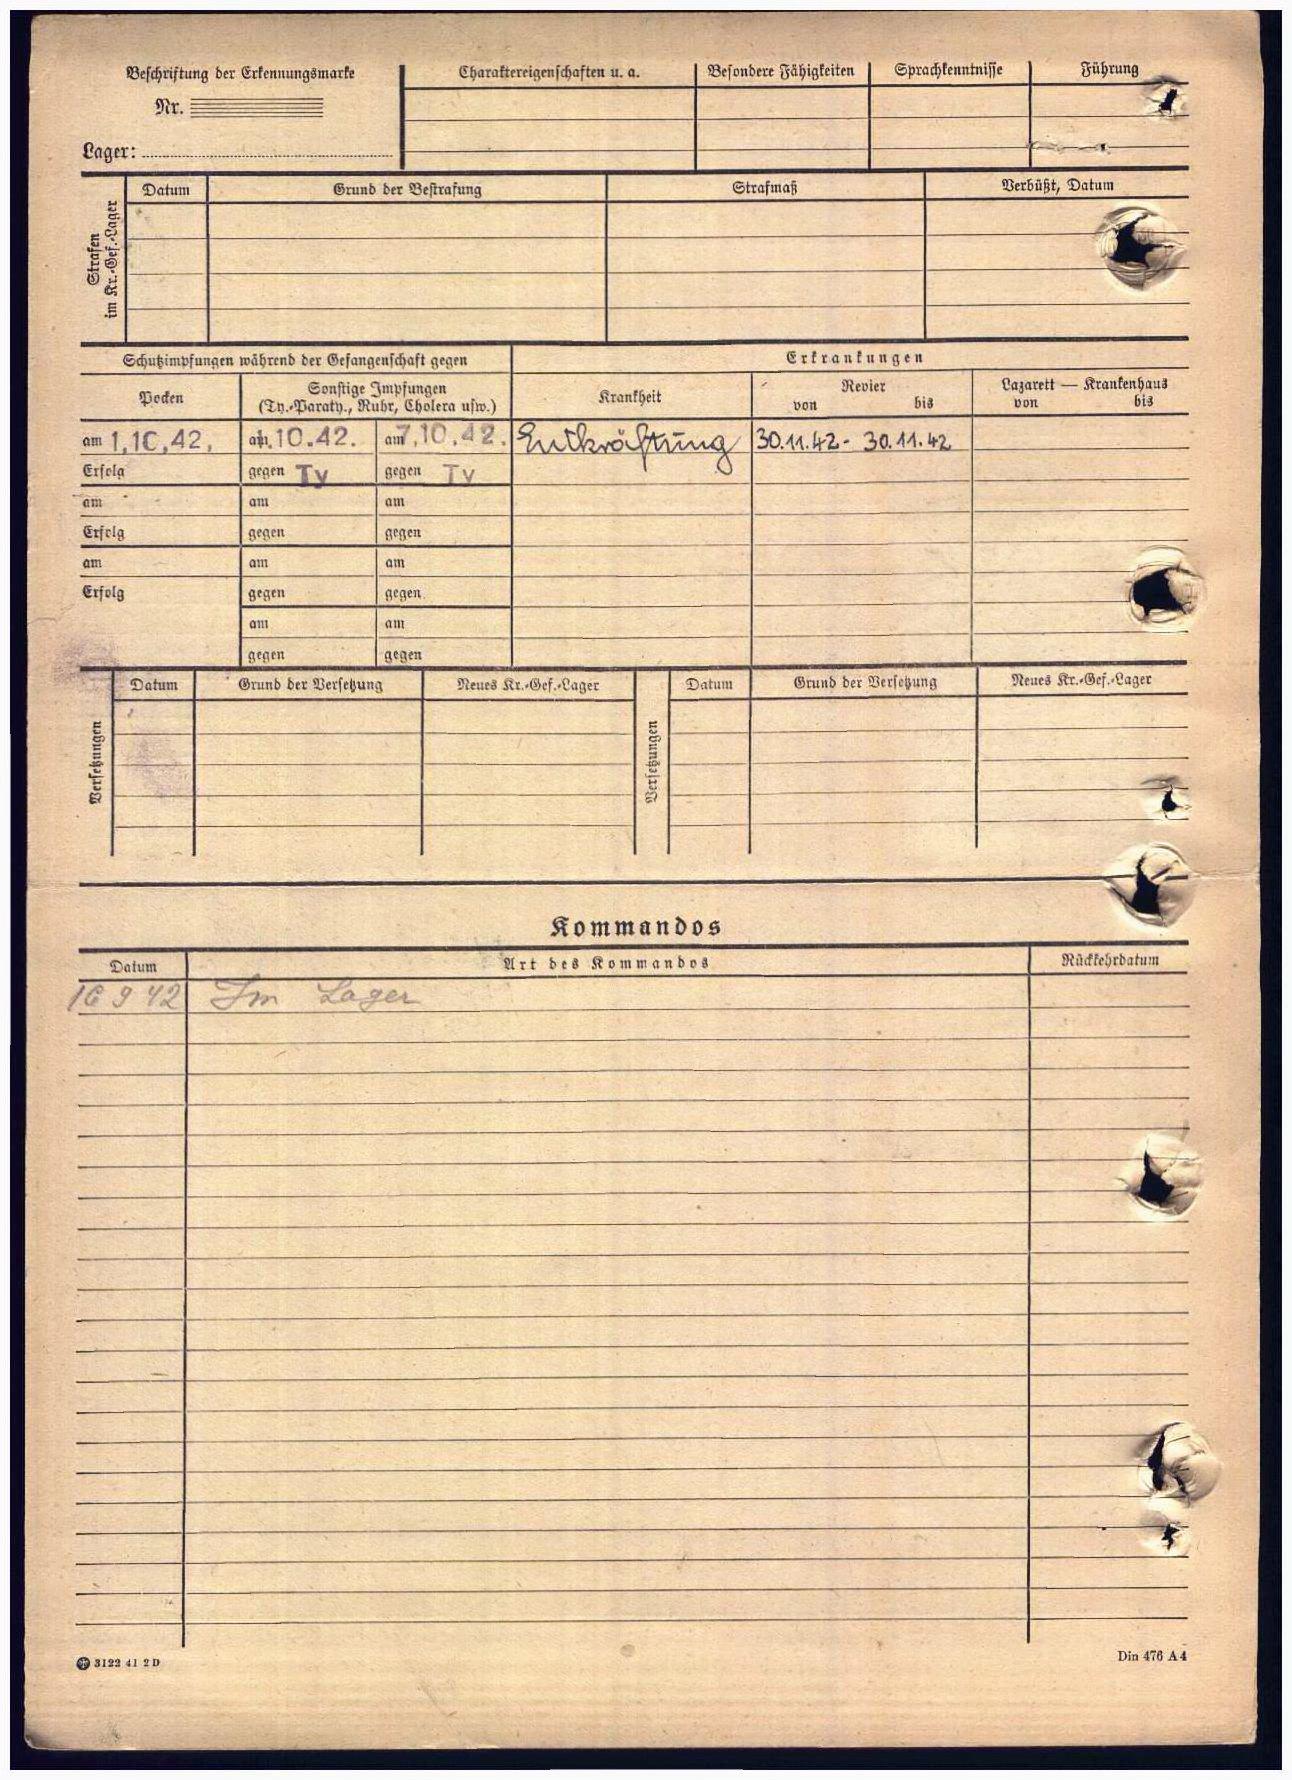 Beschriftung der Erkennungsmarke
Nr.
Lager:
Charaktereigenschaften u. a.
Besondere Fähigkeiten
Sprachkenntnisse
Führung
Strafen
im Kr.-Gef.-Lager
Datum
Grund der Bestrafung
Strafmaß
Verbüßt, Datum
Schutzimpfungen während der Gefangenschaft gegen
Erkrankungen
Pocken
Sonstige Impfungen
(Ty.-Paraty., Ruhr, Cholera usw.)
Krankheit
Revier
von bis
Lazarett — Krankenhaus
von bis
am 1.10.42. am 10.42. am 7.10.42. Entkräftung 30.11.42 - 30.11.42
Erfolg gegen Ty gegen Ty
am am am
Erfolg gegen gegen
am am am
Erfolg gegen gegen
am am
gegen gegen
Versetzungen
Datum
Grund der Versetzung
Neues Kr.-Gef.-Lager
Versetzungen
Datum
Grund der Versetzung
Neues Kr.-Gef.-Lager
Kommandos
Datum Art des Kommandos Rückkehrdatum
16 9 42 Im Lager
3122 41 2 D
Din 476 A 4